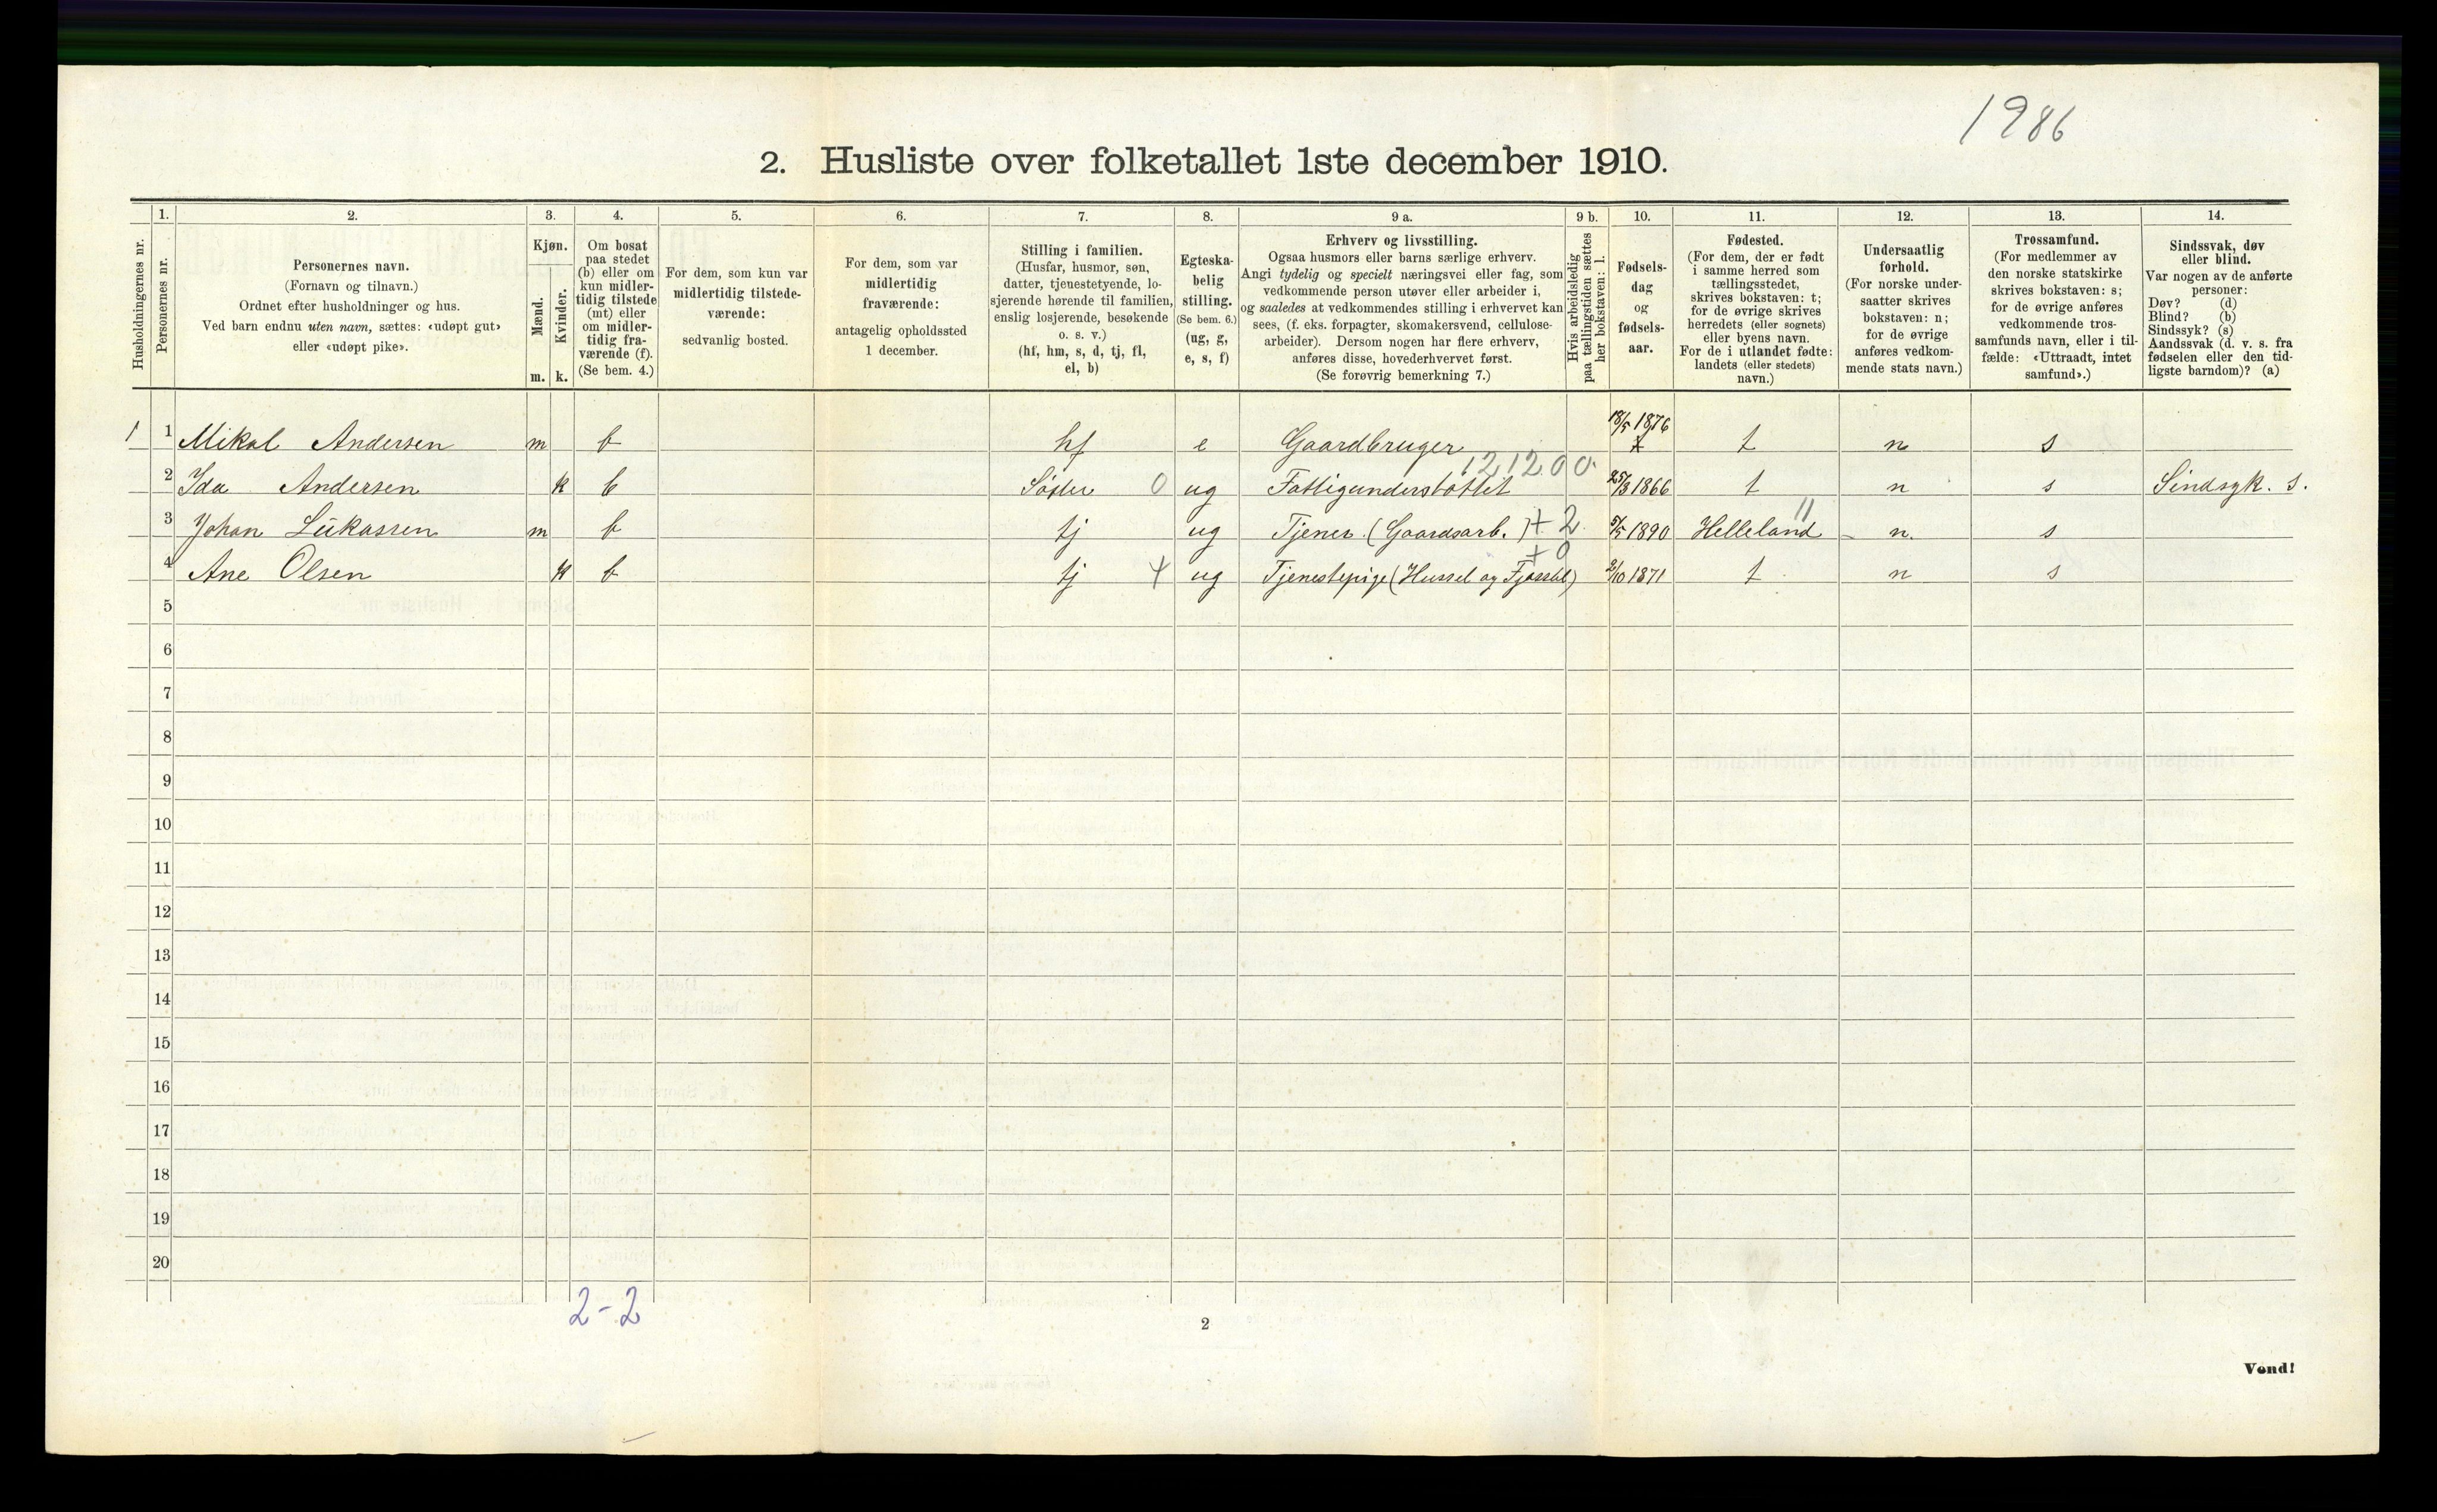 1986
2. Husliste over folketallet 1ste december 1910.
Husholdningernes nr.
1.
Personernes nr.
2.
Personernes navn.
(Fornavn og tilnavn.)
Ordnet efter husholdninger og hus.
Ved barn endnu uten navn, sættes: «udøpt gut»
eller «udøpt pike».
3.
Kjøn.
Mænd.
Kvinder.
m. k.
4.
Om bosat
paa stedet
(b) eller om
kun midler-
tidig tilstede
(mt) eller
om midler-
tidig fra-
værende (f).
(Se bem. 4.)
5.
For dem, som kun var
midlertidig tilstede-
værende:
sedvanlig bosted.
6.
For dem, som var
midlertidig
fraværende:
antagelig opholdssted
1 december.
7.
Stilling i familien.
(Husfar, husmor, søn,
datter, tjenestetyende, lo-
sjerende hørende til familien,
enslig losjerende, besøkende
o. s. v.)
(hf, hm, s, d, tj, fl,
el, b)
8.
Egteska-
belig
stilling.
(Se bem. 6.)
(ug, g,
e, s, f)
9 a.
Erhverv og livsstilling.
Ogsaa husmors eller barns særlige erhverv.
Angi tydelig og specielt næringsvei eller fag, som
vedkommende person utøver eller arbeider i,
og saaledes at vedkommendes stilling i erhvervet kan
sees, (f. eks. forpagter, skomakersvend, cellulose-
arbeider). Dersom nogen har flere erhverv,
anføres disse, hovederhvervet først.
(Se forøvrig bemerkning 7.)
9 b.
Hvis arbeidsledig
paa tællingstiden sættes
her bokstaven: l.
10.
Fødsels-
dag
og
fødsels-
aar.
11.
Fødested.
(For dem, der er født
i samme herred som
tællingsstedet,
skrives bokstaven: t;
for de øvrige skrives
herredets (eller sognets)
eller byens navn.
For de i utlandet fødte:
landets (eller stedets)
navn.)
12.
Undersaatlig
forhold.
(For norske under-
saatter skrives
bokstaven: n;
for de øvrige
anføres vedkom-
mende stats navn.)
13.
Trossamfund.
(For medlemmer av
den norske statskirke
skrives bokstaven: s;
for de øvrige anføres
vedkommende tros-
samfunds navn, eller i til-
fælde: «Uttraadt, intet
samfund».)
14.
Sindssvak, døv
eller blind.
Var nogen av de anførte
personer:
Døv? (d)
Blind? (b)
Sindssyk? (s)
Aandssvak (d. v. s. fra
fødselen eller den tid-
ligste barndom)? (a)
1 1 Mikal Andersen m b hf e Gaardbruger 18/5 1876 t n s
121200.
2 Ida Andersen k b Søster 0 ug Fattigunderstøttet 25/3 1866 t n s Sindsyk. s.
3 Johan Lukassen m b tj ug Tjener (Gaardsarb.) + 2 5/5 1890 Helleland 11 n. s
+ 0
4 Ane Olsen k b tj + ug Tjenestepige (Hussel og Fjøsstel) 2/10 1871 t n s
5
6
7
8
9
10
11
12
13
14
15
16
17
18
19
20
2-2
2
Vend!